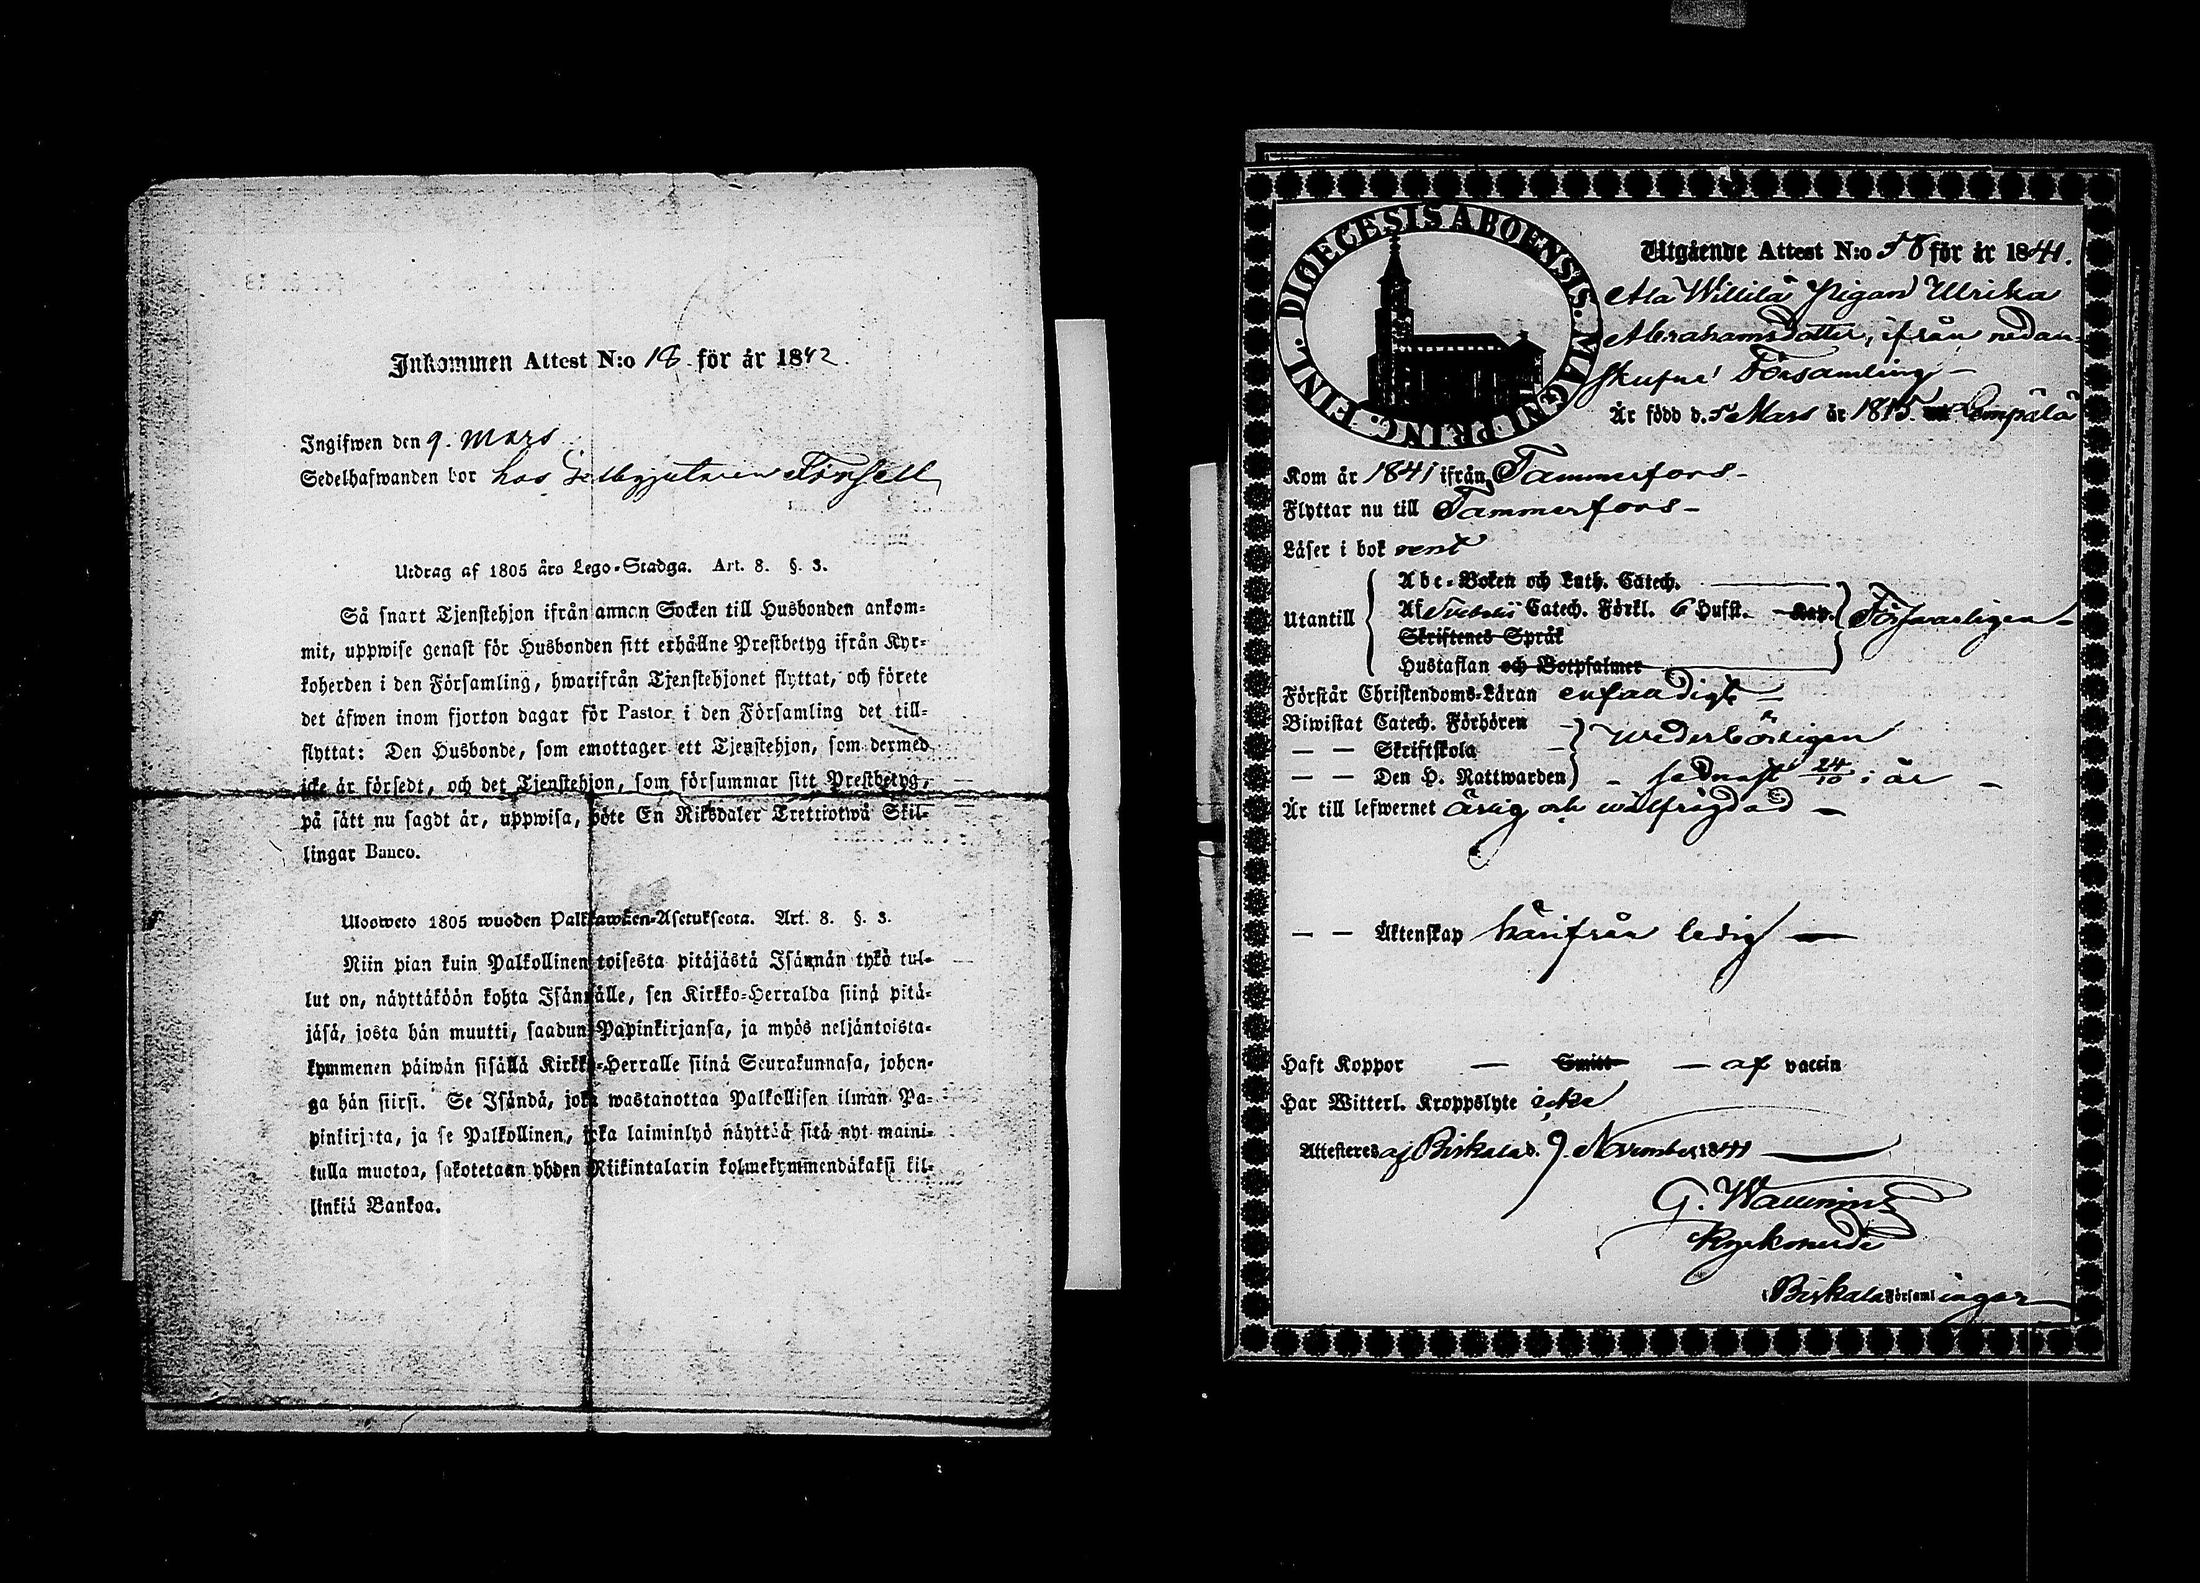 Inkommen Attest N:o 18 för år 1842.
Ingifwen den 9. Mars
Sedelhafwanden bor hos Gelbgjutaren Törnsell
Utdrag af 1805 års Lego-Stadga. Art. 8. §. 3.
Så snart Tjenstehjon ifrån annan Socken till Husbonden ankom-
mit, uppwise genast för Husbonden sitt erhållne Prestbetyg ifrån Kyr-
koherden i den Församling, hwarifrån Tjenstehjonet flyttat, och förete
det äfwen inom fjorton dagar för Pastor i den Församling det till-
flyttat: Den Husbonde, som emottager ett Tjenstehjon, som dermed
icke är försedt, och det Tjenstehjon, som försummar sitt Prestbetyg,
på sätt nu sagdt är, uppwisa, böte En Riksdaler Trettiotwå Skil-
lingar Banco.
Ulosweto 1805 wuoden Palkkawäen-Asetuksesta. Art. 8. §. 3.
Niin pian kuin Palkollinen toisesta pitäjästä Isännän tykö tul-
lut on, näyttäköön kohta Isännälle, sen Kirkko-Herralda siinä pitä-
jäsä, josta hän muutti, saadun Papinkirjansa, ja myös neljäntoista-
kymmenen päiwän sisällä Kirkko-Herralle siinä Seurakunnasa, johon-
ga hän siirsi. Se Isändä, joka wastanottaa Palkollisen ilman Pa-
pinkirjata, ja se Palkollinen, joka laiminlyö näyttää sitä nyt maini-
tulla muotoa, sakotetaan yhden Riikintalarin kolmekymmendäkaksi kil-
linkiä Bankoa.
DIOECESIS ABOENSIS. MAGNI PRINC. FINL.
Utgående Attest N:o 58 för år 1841.
Ala Willilä Pigan Ulrika
Abrahamsdotter, ifrån nedan-
skrifne Församling –
Är född d. 5 Mars år 1815. Lempälä
Kom år 1841 ifrån Tammerfors –
Flyttar nu till Tammerfors –
Läser i bok rent
Utantill
Abc-Boken och Luth. Catech.
Af Svebelii Catech. Förkl. 6 Hufst. – Kap. Försvarligen –
Skriftenes Språk
Hustaflan och Botpsalmer
Förstår Christendoms-Läran enfaldigt –
Biwistat Catech. Förhören
— — Skriftskola – wederbörligen
— — Den H. Nattwarden – sednast 24/10 i år –
Är till lefwernet ärlig och wälfrägdad –
— — Äktenskap härifrån ledig —
Haft Koppor — Smitt — af vaccin
Har Witterl. Kroppslyte icke
Attesteras af Birkala d. 9 November 1841
G. Wallenius
Kyrkoherde
i Birkala Församlingar